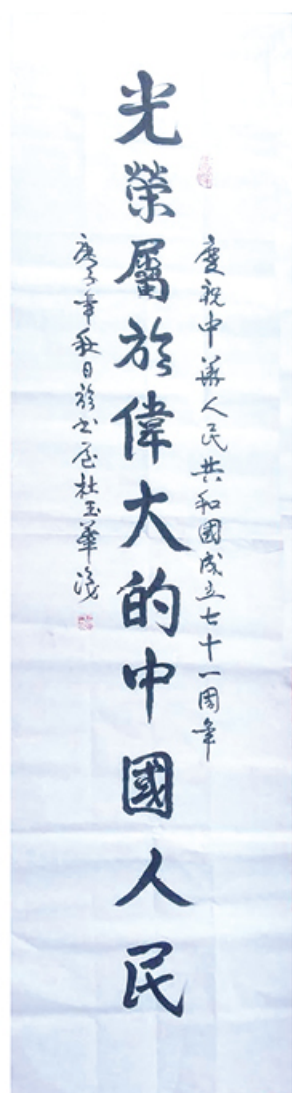 慶祝中華人民共和國成立七十一周年
光榮屬於偉大的中國人民
庚子年秋日於書屋杜玉華篆